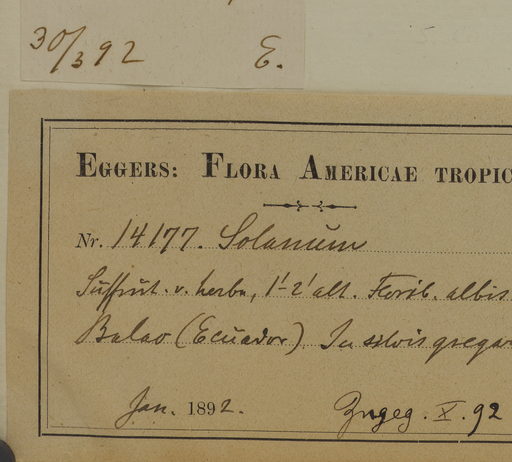 30/3 92 E.
EGGERS: FLORA AMERICAE TROPIC
Nr. 14177. Solanum
Suffrut. v. herba, 1'-2' alt. Florib. albis
Balao (Ecuador) In silvis gregar
Jan. 1892. Zugeg. X. 92